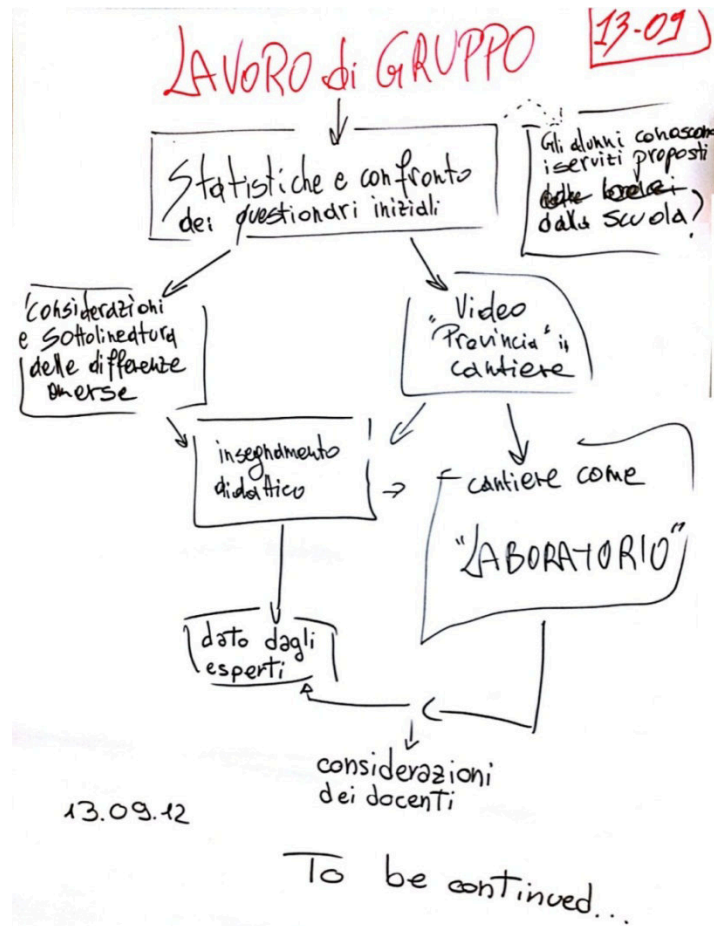 LAVORO di GRUPPO
13-09
Statistiche e confronto
dei questionari iniziali
Gli alunni conoscono
i servizi proposti
dalla scuola?
Considerazioni
e sottolineatura
delle differenze
emerse
Video
"Provincia" in
cantiere
insegnamento
didattico
cantiere come
"LABORATORIO"
dato dagli
esperti
considerazioni
dei docenti
13.09.12
To be continued...